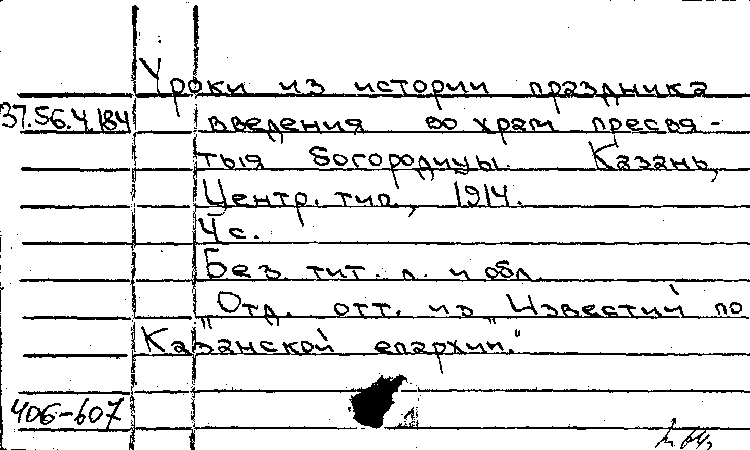 Уроки из истории праздника
37.56.4.184 введения во храм пресвя-
тыя богородицы. Казань,
Центр. тип., 1914.
4 с.
Без тит. л. и обл.
"Отд. отт. из "Известий по
Казанской епархии."
406-607